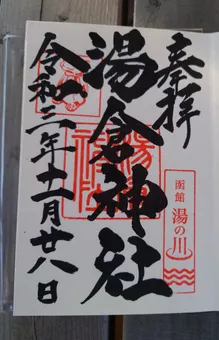 奉拝
函館
湯の川
湯倉神社
令和三年十一月廿八日